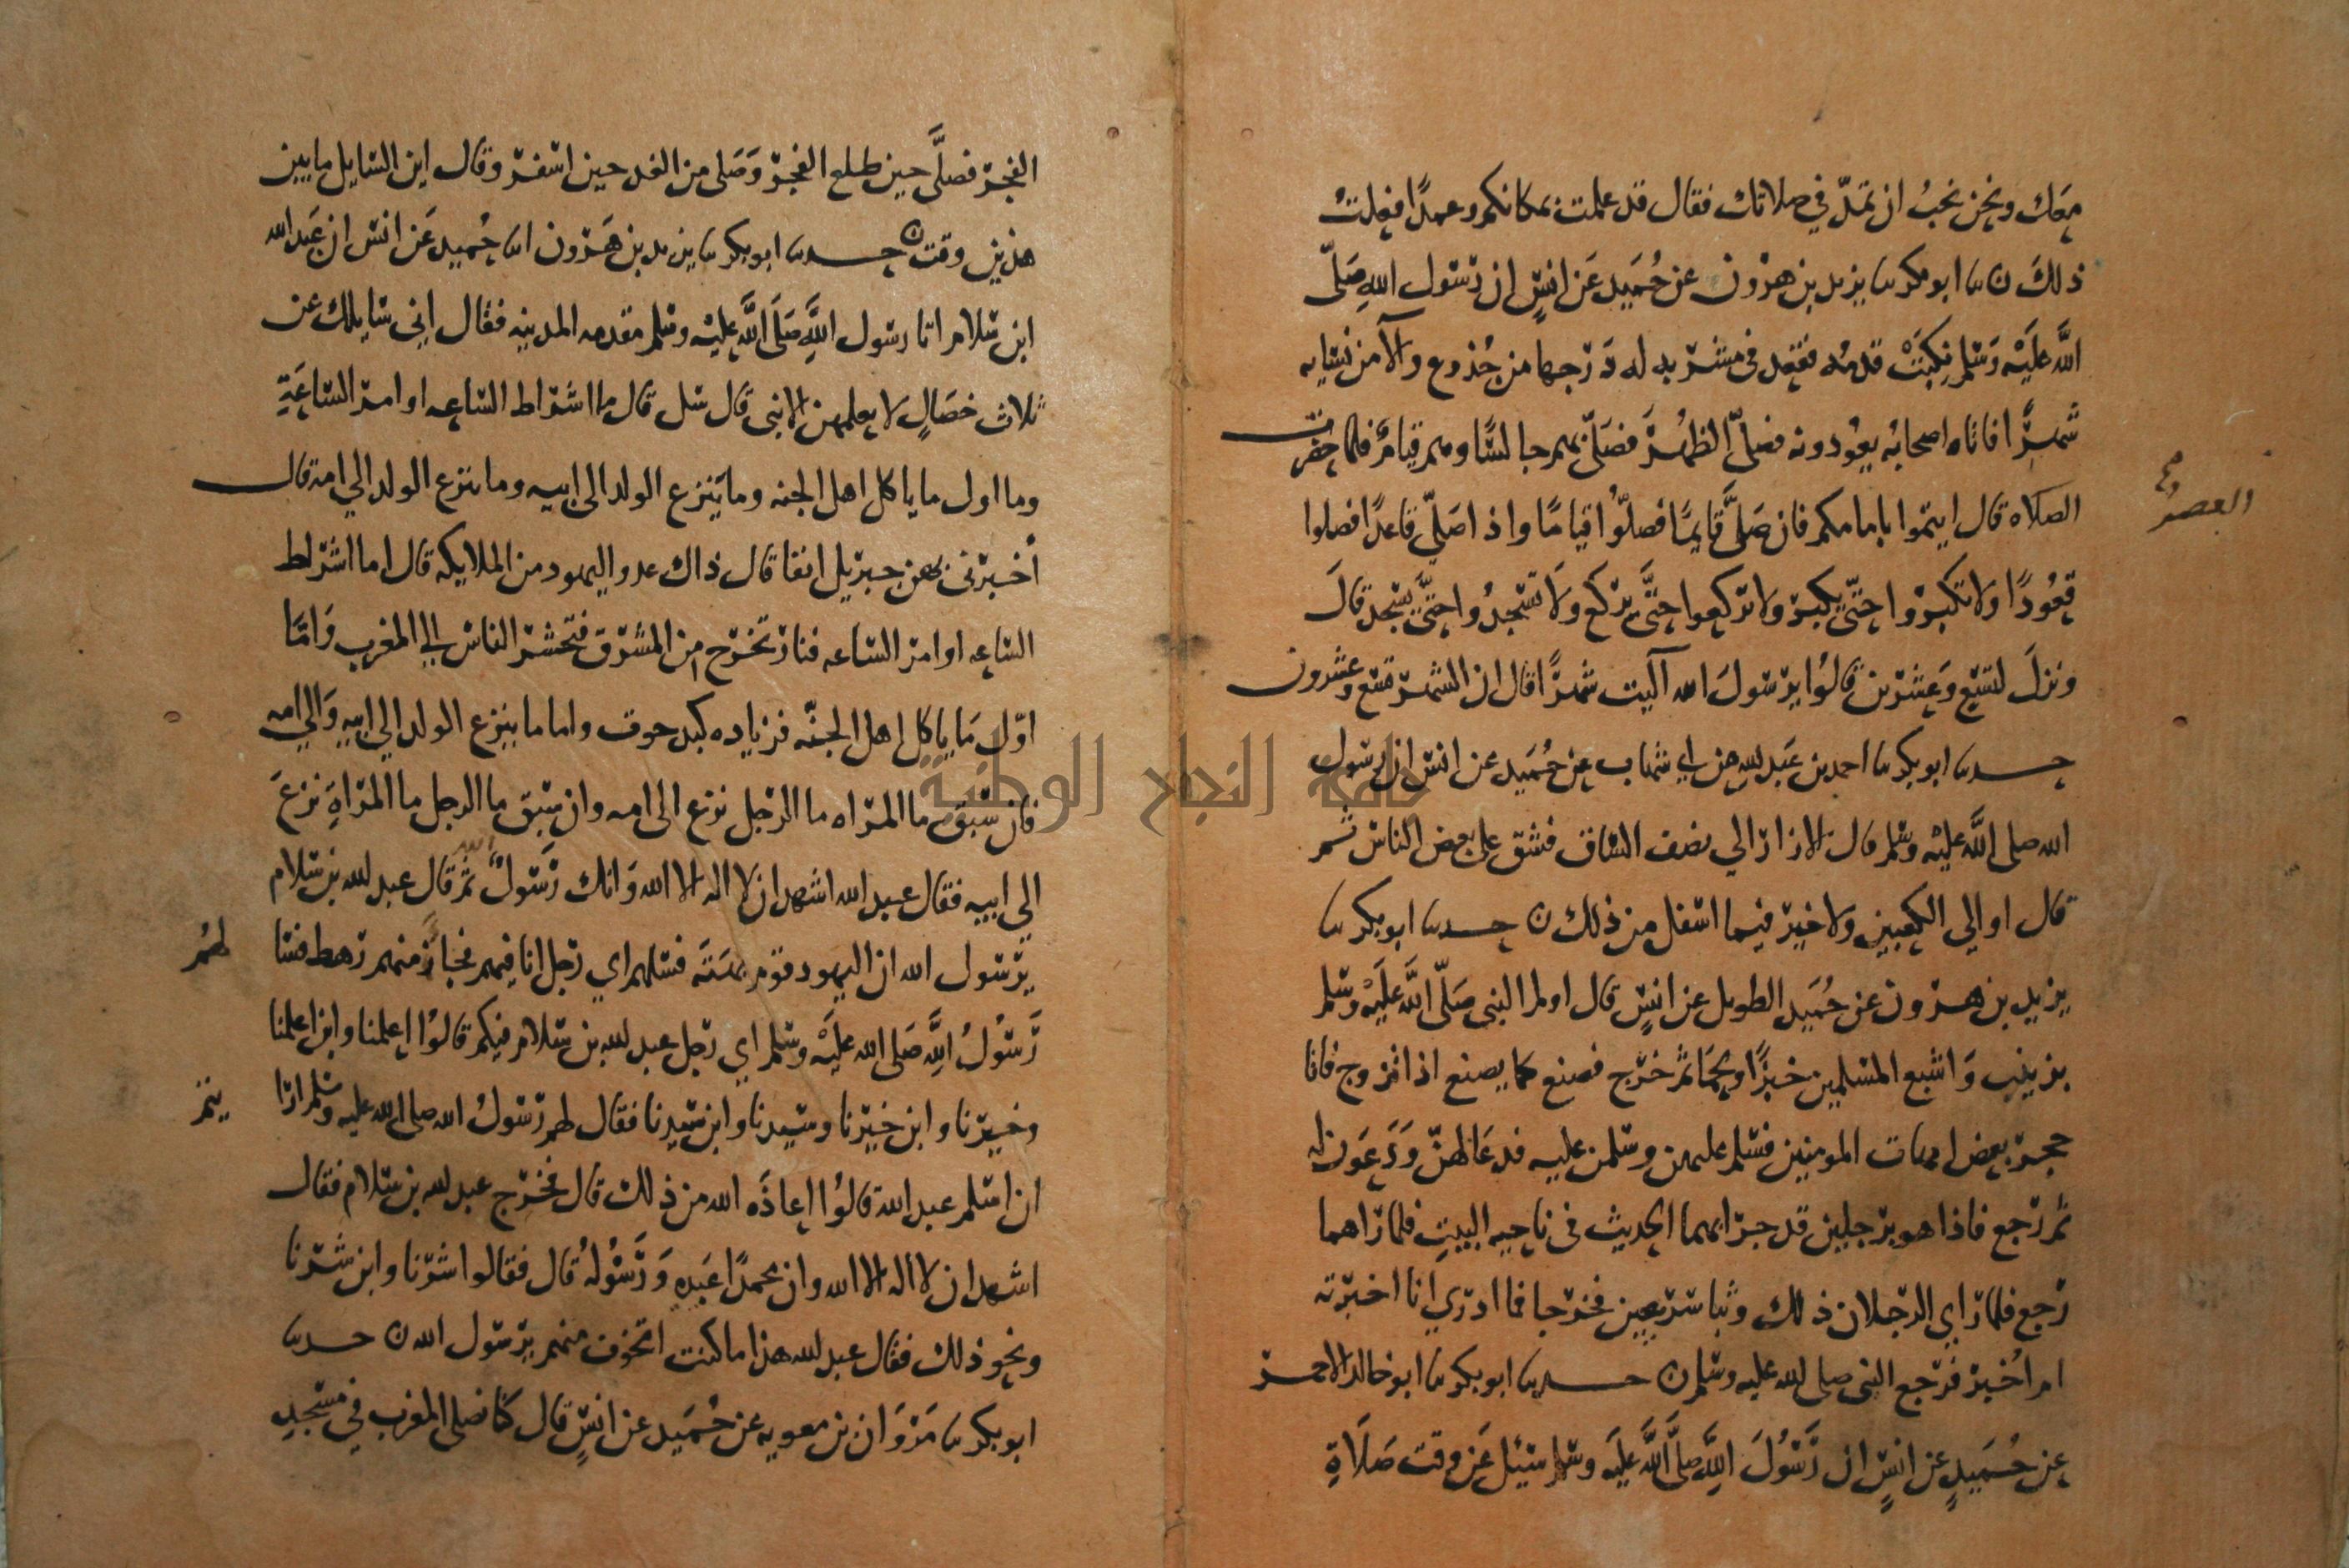 معك ونحن نحب ان تمدّ في صلاتك فقال قد علمت بمكانكم وعمدًا فعلتُ
ذلكَ ن نا ابو بكر نا يزيد بن هرون عن حُمَيد عَن انسٍ ان رسُول اللهِ صَلّى
اللَّه عَليَه وَسَلم نكبَتْ قدمُه فقعد في مشربه له دَرَجها من جُذوع وآلا من نسايه
شهرًا فاتاه اصحابُه يعُودونه فصلّى الظهُرَ فصَلّى بهم جالسًا وهم قيامٌ فلما حضرت
العصرُ صح
الصلاه قال ايتموا بامامكم فان صَلىَّ قايمًا فصلّوُا قيامًا واذا صَلّى قاعدًا فصلوا
قعُودًا وَلا تكبرُوا حتّى يكبرَ ولا تركعوا حتَّى يركع وَلا تسجدُوا حتَّى يسجد قالَ
ونزلَ لتسَعٍ وَعشرين قالوُا يرسُولَ الله آليت شهرًا قال ان الشهر تسع وعشرون
حدثنا ابو بكر نا احمد بن عَبد للهِ عن ابي شهاب عن حُمَيد عن انس ان رسول
الله صلى اللَّه عليْه وسَلم قال الازار الي نصف السَّاق فشق على بعض الناس ثم
قال او الي الكعبين ولا خير فيما اسفل من ذلك ن حدثنا ابو بكر نا
يزيد بن هرون عن حُمَيد الطويل عن انسٍ قال اولم النبي صَلّى اللَّه عليَه وَسَلم
بزينب وَاشبع المسلمين خبزًا ولحمًا ثم خرج فصنع كما يصنع اذا تزوج فاتا
حجر بعض امهات المومنين فسَلم عليهن وسَلمن عليه فدعَا لهنّ وَدَعَون له
ثم رَجع فاذا هو برَجلين قد جرَا بهما الحديث في ناحيه البيت فلما راهما
رَجع فلما رَاي الرجلان ذلك وثبا سَريعين فخرجا فما ادرَي انا اخبرَته
ام اُخبرَ فرَجع النبي صلى لله عليه وسَلم ن حدثنا ابو بكر نا ابو خالد الاحمر
عن حُمَيدٍ عن انسٍ ان رَّسُولَ اللهِ صلىَّ اللَّه عليَه وسَلم سئِل عَن وقت صَلَاةِ
الفجرَ فصلَّى حين طلع الفجرَ وَصَلى من الغد حين اسفرَ وقال اين السَّايل ما بين
هذين وقت ن حدثنا ابو بكر نا يزيد بن هَرون انا حُميد عَن انسَ ان عَبد الله
ابن سَلام اتا رسَول اللَّهِ صَلَى اللَّه عليْه وسَلم مقدمه المدينه فقال اني سَايلك عن
ثلاث خصَالٍ لا يعلمهن الا نبي قال سَل قال ما اشراط السَّاعه او امر السَّاعَةِ
وما اول ما ياكل اهل الجنه وما يَنزع الولد الى ابيه وما ينزع الولد الي امه قال
أخبرَني بهن جبرَيل انفا قال ذاك عدو اليهود من الملايكه قال اما اشراط
السَّاعه او امر السَّاعه فنارَ تخرَج من المشرق فتحشرَ الناسَ الي المغرب وَامَّا
اوّل مَا ياكل اهل الجنّه فزياده كبد حوت واما ما ينزع الولد الي ابيه وَالي امه
فان سَبق ما المرَاه ما الرَجل نزع الى امه وان سَبق ما الرجل ما المرَاةِ نزعَ
الى ابيه فقال عبد الله اشهد ان لا اله الا الله وَانك رَسَولُ الله ثم قال عبد لله بن سَلام
يرَسَول الله ان اليهود قوم بهتَه فسَلهم اي رَجل انا فيهم فجا منهم رَهط فسَا
لهُم
رَّسَوُلُ اللَّهِ صَلى الله عليَه وسَلم اي رَجل عبد لله بن سَلام فيكم قالوُا اعلمنا وابن اعلمنا
وخيرَنا وابن خيرَنا وسَيدنا وابن سَيدنا فقال لهم رَسَولُ الله صلى الله عليه وسَلم ارا
يتم
ان اسَلم عبد الله قالوُا اعاذَه الله من ذلك قال فخرَج عبد لله بن سَلام فقال
اشهد ان لا اله الا الله وان محمدًا عَبدهِ وَرَّسَوُلهُ قال فقالوا شرّنا وابن شَرَنا
ونحو ذلك فقال عبد لله هذا ما كنت اتخوف منهم يرَسَول الله ن حدثنا
ابو بكر نا مَروَان بن معويه عن حُمَيد عن انسٍ قال كنا نصلى المغرب في مسَجدِ
جامعة النجاح الوطنية